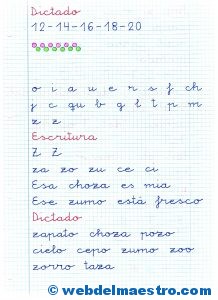 Dictado
12-14-16-18-20
o i a u e r s f ch
y c qu b g l t p m
z z
Escritura
Z Z
za zo zu ce ci
Esa choza es mia
Ese zumo está fresco
Dictado
zapato choza pozo
cielo cepo zumo zoo
zorro taza
© webdelmaestro.com